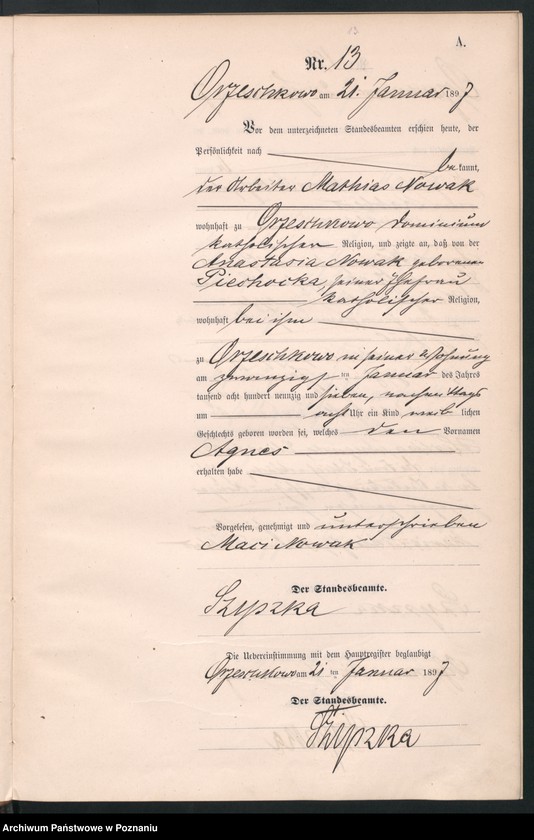 13
A.
Nr. 13
Orzeschkowo am 21. Januar 1897
Vor dem unterzeichneten Standesbeamten erschien heute, der
Persönlichkeit nach bekannt,
der Arbeiter Mathias Nowak
wohnhaft zu Orzeschkowo Dominium
katholischer Religion, und zeigte an, daß von der
Anastasia Nowak geborenen
Piechocka, seiner Ehefrau
katholischer Religion,
wohnhaft bei ihm
zu Orzeschkowo in seiner Wohnung
am zwanzigsten Januar des Jahres
tausend acht hundert neunzig und sieben, nachmittags
um acht Uhr ein Kind weiblichen
Geschlechts geboren worden sei, welches den Vornamen
Agnes
erhalten habe
Vorgelesen, genehmigt und unterschrieben
Maci Nowak
Der Standesbeamte.
Szypzka
Die Uebereinstimmung mit dem Hauptregister beglaubigt
Orzeschkowo am 21 ten Januar 1897
Der Standesbeamte.
Szypzka
Archiwum Państwowe w Poznaniu